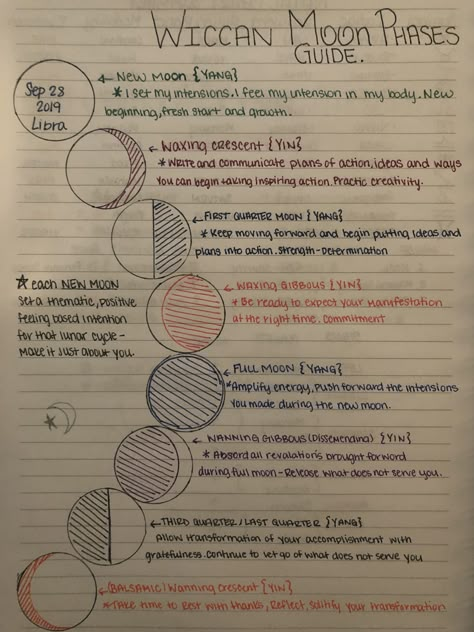 WICCAN MOON PHASES
GUIDE.
Sep 28
2019
Libra
← NEW MOON {YANG}
* I set my intensions. I feel my intension in my body. New
beginning, fresh start and growth.
← WAXING CRESCENT {YIN}
* Write and communicate plans of action, ideas and ways
you can begin taking inspiring action. Practic creativity.
← FIRST QUARTER MOON {YANG}
* Keep moving forward and begin putting ideas and
plans into action. Strength - Determination
★ each NEW MOON
set a thematic, positive
feeling based intention
for that lunar cycle -
make it just about you.
← WAXING GIBBOUS {YIN}
* Be ready to expect your manifestation
at the right time. commitment
← FULL MOON {YANG}
* Amplify energy, push forward the intensions
you made during the new moon.
← WANNING GIBBOUS (DISSEMENDING) {YIN}
* Absord all revalations brought forward
during full moon - Release what does not serve you.
← THIRD QUARTER / LAST QUARTER {YANG}
Allow transformation of your accomplishment with
gratefulness. Continue to let go of what does not serve you
← (BALSAMIC) Wanning Crescent {YIN}
* Take time to Rest with thanks, Reflect, solitify your transformation